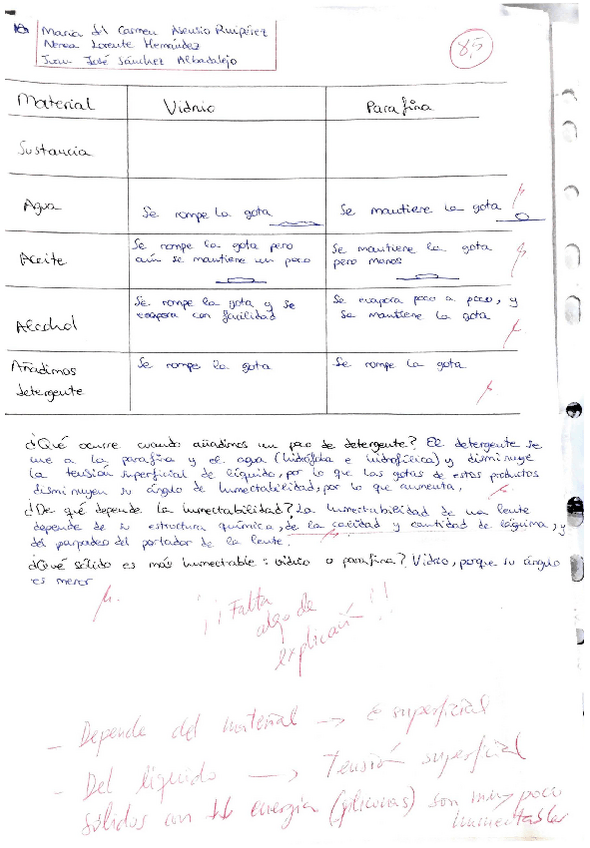 María del Carmen Asensio Ruipérez
Nerea Lorente Hernández
Juan José Sánchez Albadalejo
8,5
Material Vidrio Parafina
Sustancia
Agua Se rompe la gota Se mantiene la gota
Aceite Se rompe la gota pero aún se mantiene un poco Se mantiene la gota pero menos
Alcohol Se rompe la gota y se evapora con facilidad Se evapora poco a poco, y se mantiene la gota
Añadimos detergente Se rompe la gota Se rompe la gota
¿Qué ocurre cuando añadimos un poco de detergente? El detergente se
une a la parafina y el agua (hidrófoba e hidrofílica) y disminuye
la tensión superficial de líquido, por lo que las gotas de estos productos
disminuyen su ángulo de humectabilidad, por lo que aumenta.
¿De qué depende la humectabilidad? La humectabilidad de una lente
depende de su estructura química, de la calidad y cantidad de lágrima, y
del parpadeo del portador de la lente.
¿Qué sólido es más humectable: vidrio o parafina? Vidrio, porque su ángulo
es menor
¡¡Falta
algo de
explicación!!
- Depende del material → E superficial
- Del líquido → Tensión superficial
Sólidos con energía (siliconas) son muy poco
humectables